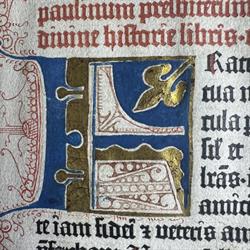 paulinum presbiterum
divine historie libris
Rat
tua m
cula p
sil' et
lrãs
amici
te iam fidei et veteris am